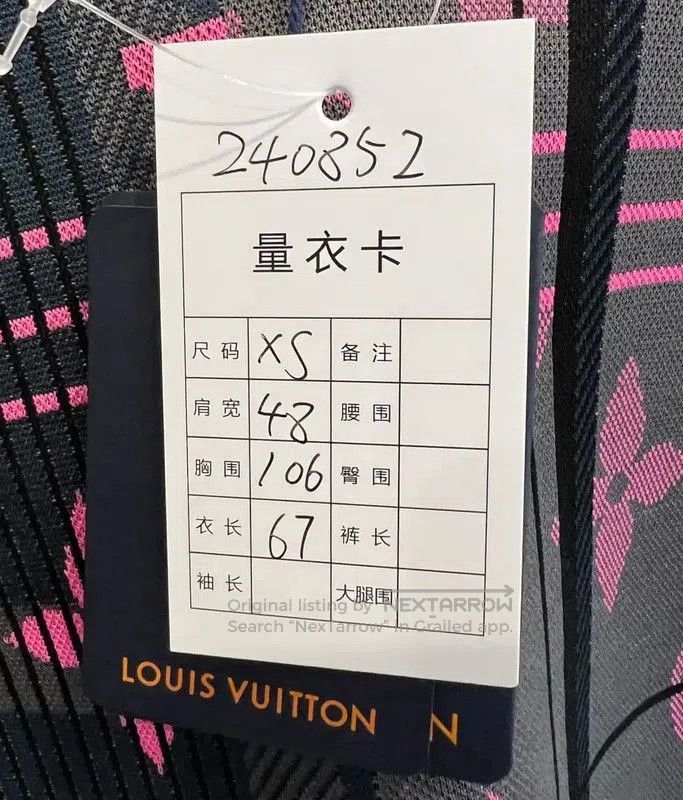 240852
量衣卡
尺码 XS 备注
肩宽 48 腰围
胸围 106 臀围
衣长 67 裤长
袖长 大腿围
Original listing by NEXTARROW
Search "NexTarrow" in Grailed app.
LOUIS VUITTON N